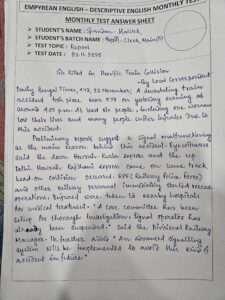 EMPYREAN ENGLISH - DESCRIPTIVE ENGLISH MONTHLY TEST
MONTHLY TEST ANSWER SHEET
➤ STUDENT'S NAME : Mallick
➤ STUDENT'S BATCH NAME : Clerk Main
➤ TEST TOPIC : Report
➤ TEST DATE : 22.11.2025
Six killed in Horrific Train Collision
- By Local Correspondent
Daily Bengal Times, 22 November : A devastating train
accident took place near on yesterday evening at
around pm. At least six people, including one woman
lost their lives and many people suffer injuries due to
this accident.
Preliminary report suggest a signal malfunctioning
as the main reason behind this accident. Eye witnesses
said the down Howrah- express and the up
Delhi Howrah Rajdhani express came on same track
head on collision occurred. RPF (Railway Police force)
and other railway personnel immediately started rescue
operations. Injured were taken to nearby hospitals
for medical treatment. "A core committee has been
setup for thorough investigation. Signal operator has
already been suspended." said the Divisional Railway
Manager. He further added "An advanced signalling
system will be implemented to avoid this kind of
accident in future".